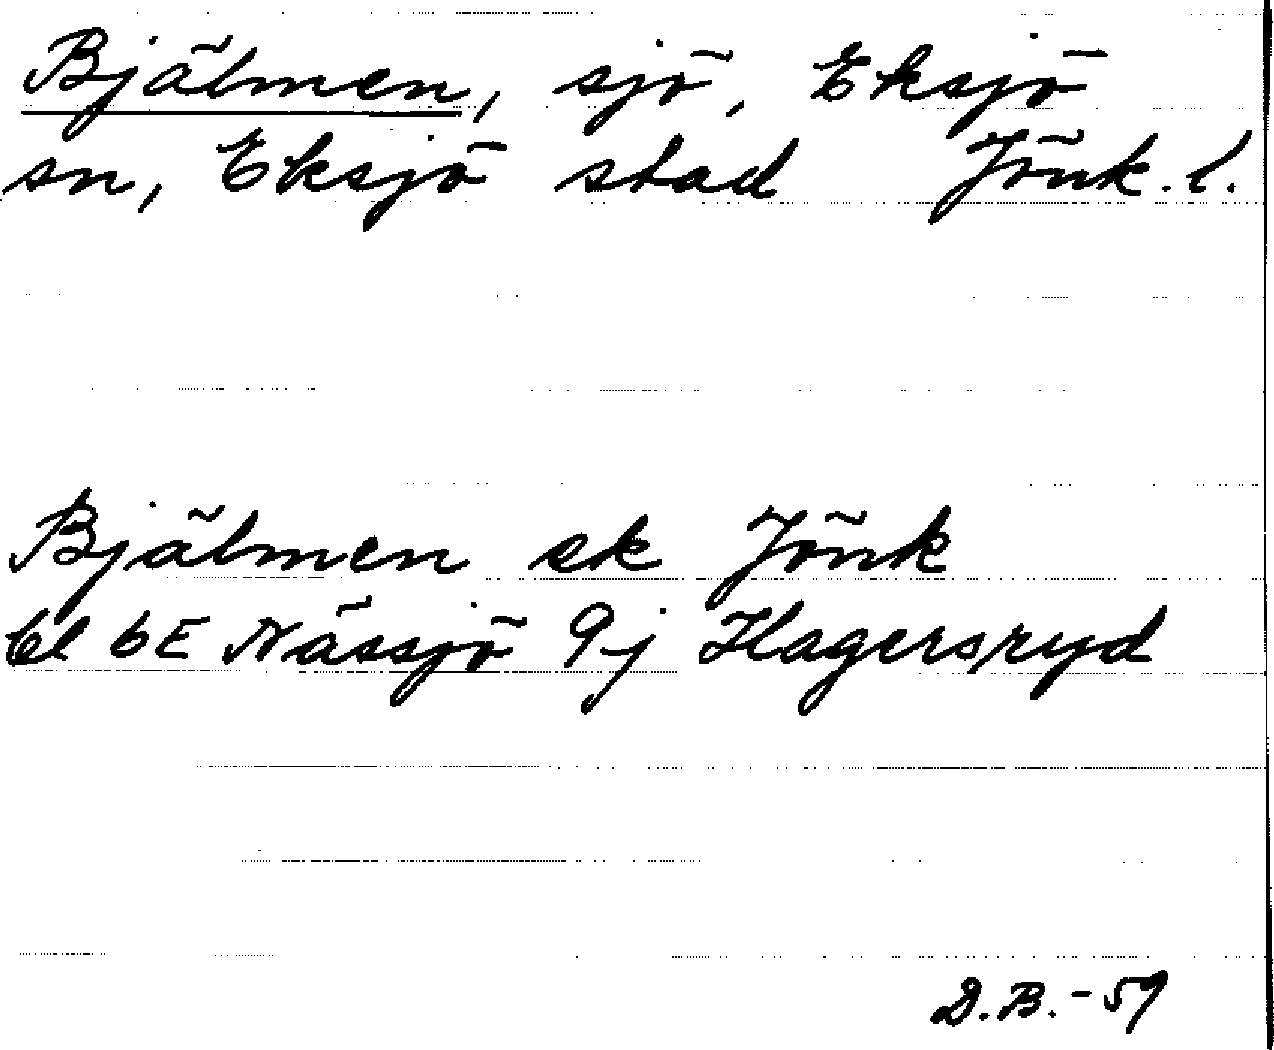 Bjälmen, sjö, Eksjö
sn, Eksjö stad Jönk. l.
Bjälmen ek Jönk
bl 6E Nässjö 9j Hagersryd
D.B. -59